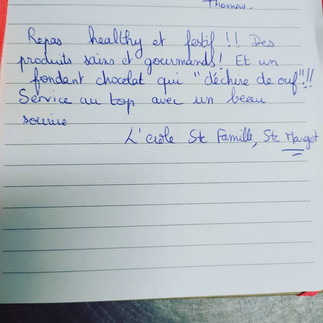 Thomew.
Repas healthy et festif !! Des
produits sains et gourmands ! Et un
fondant chocolat qui "déchire de ouf" !!
Service au top avec un beau
sourire
L'école Ste Famille, Ste Margot